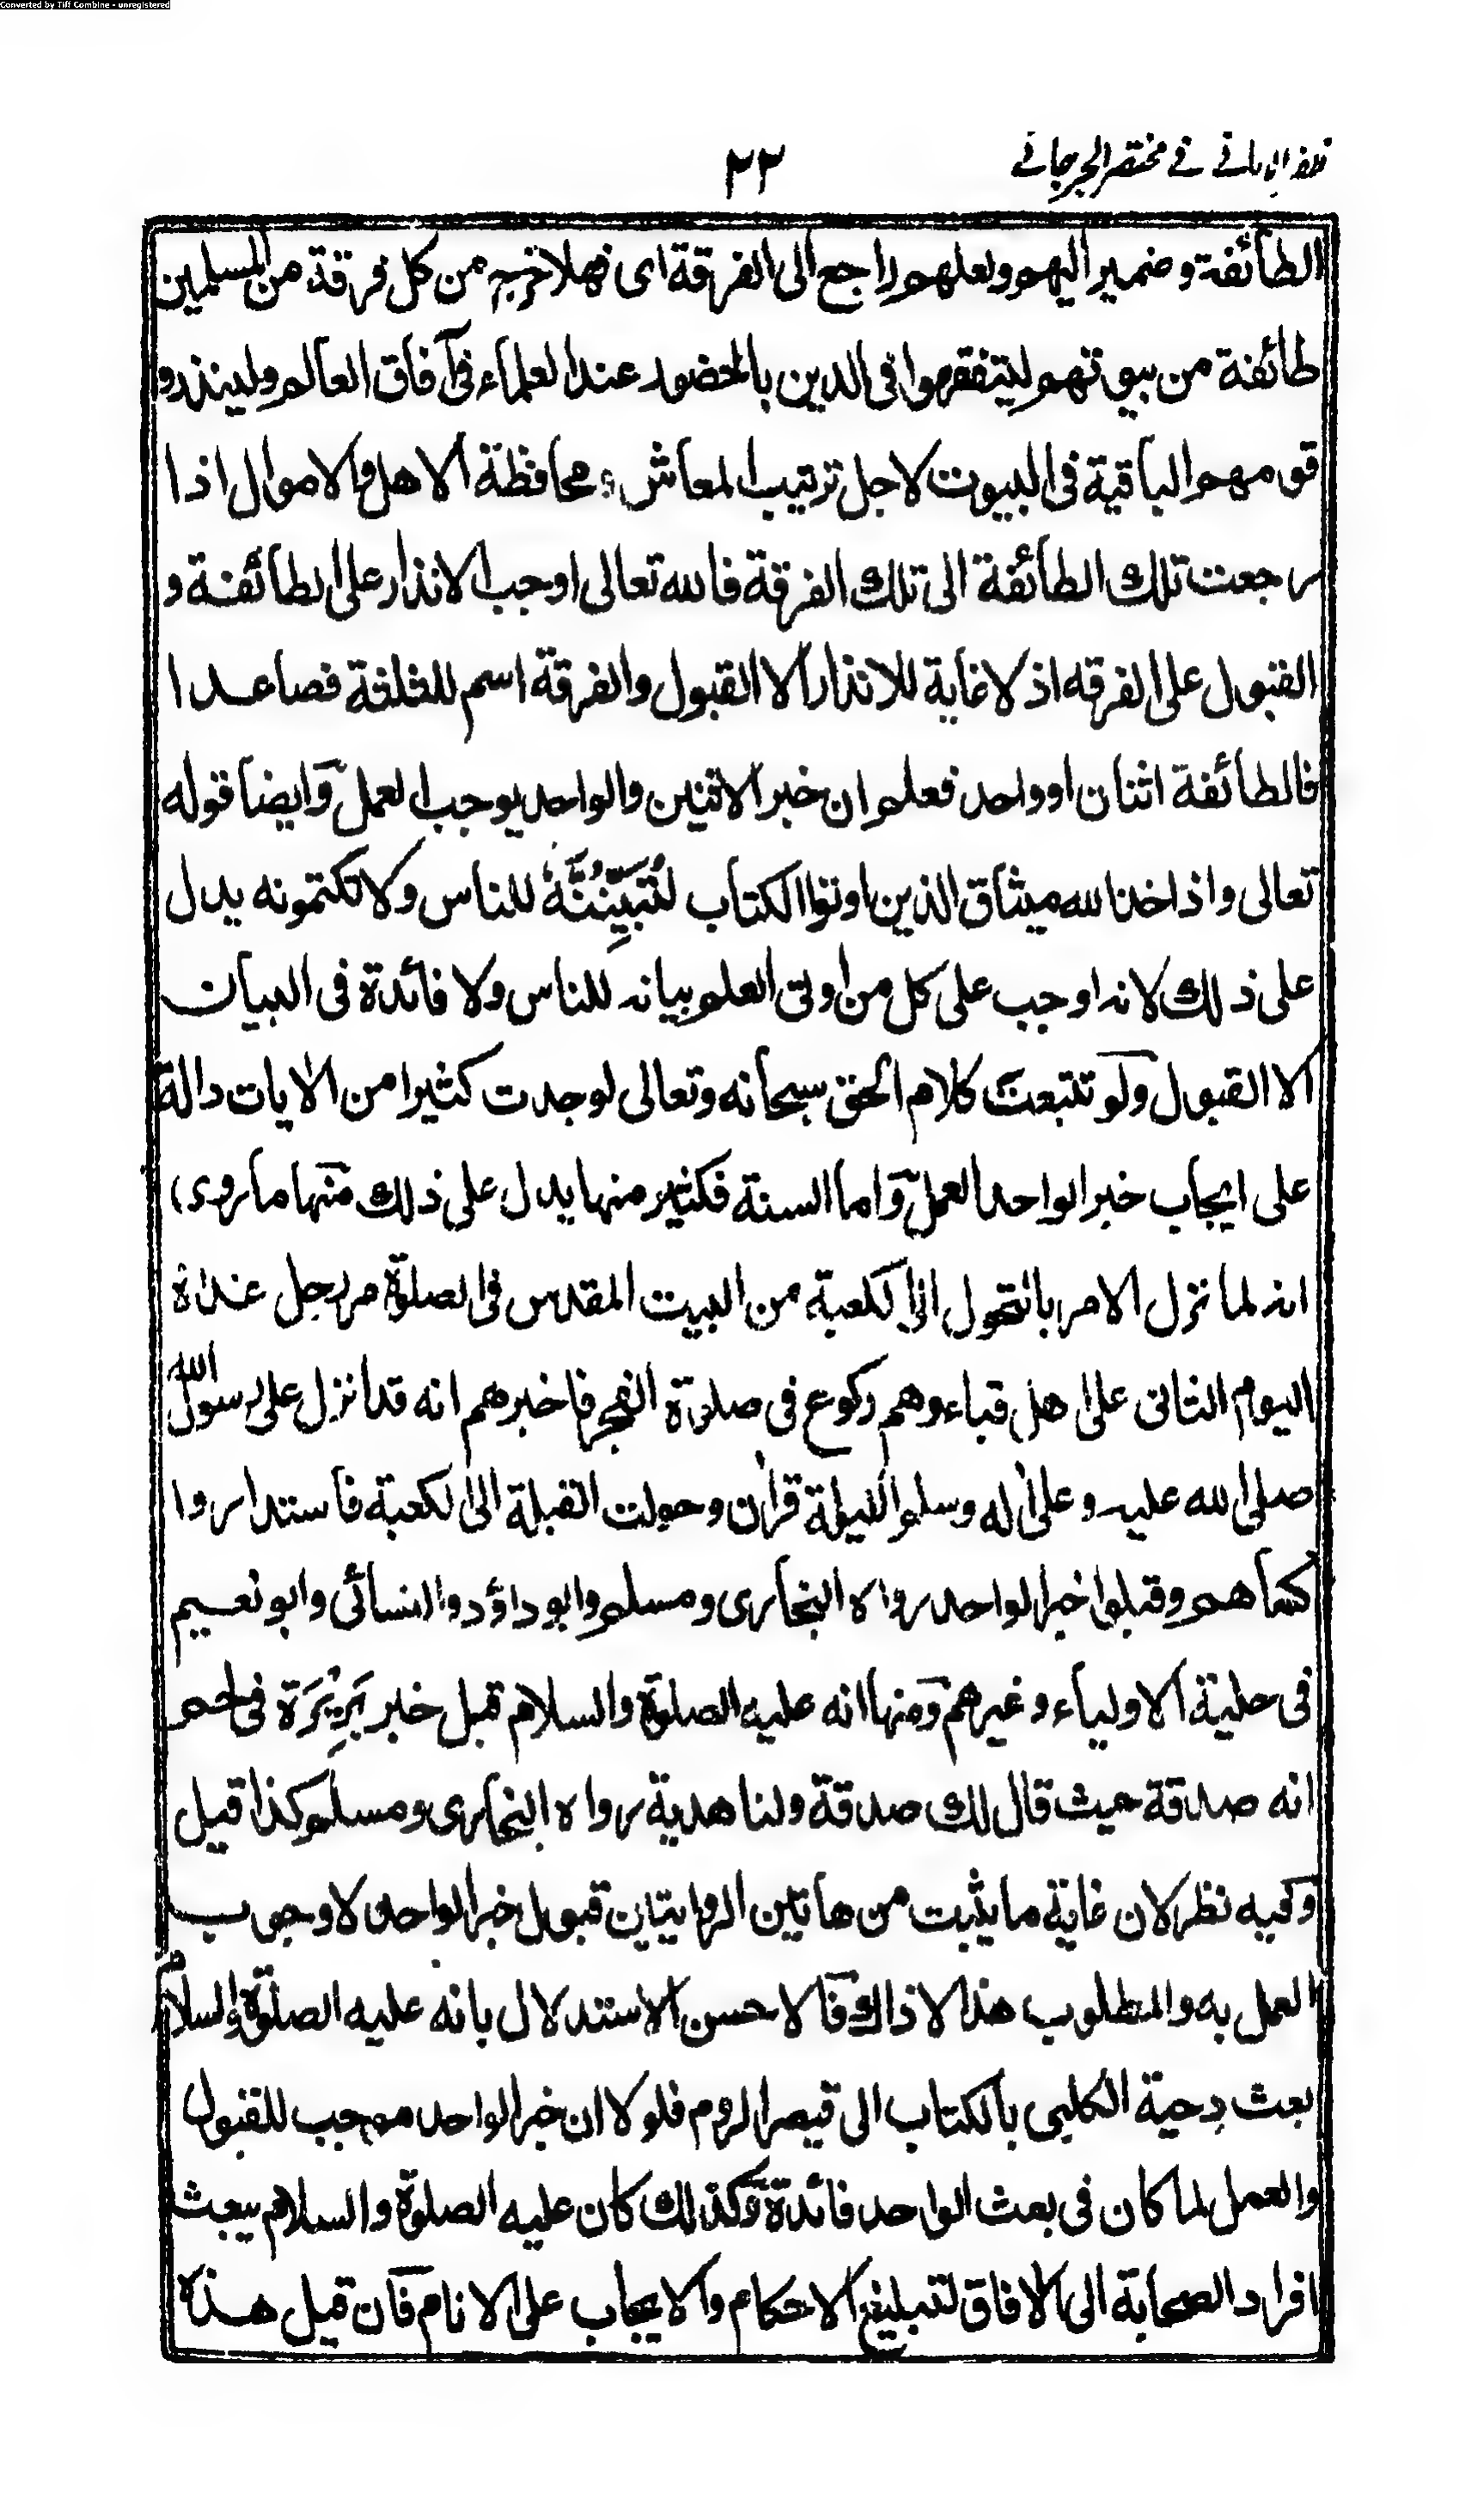 Converted by Tiff Combine - unregistered
ظفر الاماني في مختصر الجرجاني
٢٣
الطائفة وضمير اليهم ولعلهم راجع الى الفرقة اى فهلا خرج من كل فرقة من المسلمين
طائفة من بيوتهم ليتفقهوا فى الدين بالحضور عند العلماء فى آفاق العالم ولينذروا
قومهم الباقية فى البيوت لاجل ترتيب المعاش ومحافظة الاهل والاموال اذا
رجعت تلك الطائفة الى تلك الفرقة فالله تعالى اوجب الانذار على الطائفة و
القبول على الفرقه اذ لا غاية للانذار الا القبول والفرقة اسم للثلثة فصاعدا
فالطائفة اثنان او واحد فعلم ان خبر الاثنين والواحد يوجب العمل وايضا قوله
تعالى واذ اخذ الله ميثاق الذين اوتوا الكتاب لَتُبَيِّنُنَّهُ للناس ولا تكتمونه يدل
على ذلك لانه اوجب على كل من اوتى العلم بيانه للناس ولا فائدة فى البيان
الا القبول ولو تتبعت كلام الحق سبحانه وتعالى لوجدت كثيرا من الايات دالة
على ايجاب خبر الواحد العمل واما السنة فكثير منها يدل على ذلك منها ما روى
انه لما نزل الامر بالتحول الى الكعبة من البيت المقدس فى الصلوة مر رجل غداة
اليوم الثانى على اهل قباء وهم ركوع فى صلوة الفجر فاخبرهم انه قد انزل على رسول الله
صلى الله عليه وعلى اله وسلم الليلة قران وحولت القبلة الى الكعبة فاستداروا
كما هم وقبلوا خبر الواحد رواه البخارى ومسلم وابو داؤد والنسائى وابو نعيم
فى حلية الاولياء وغيرهم ومنها انه عليه الصلوة والسلام قبل خبر بَرِيْرَة فى لحم
انه صدقة حيث قال لك صدقة ولنا هدية رواه البخارى ومسلم كذا قيل
وفيه نظر لان غاية ما يثبت من هاتين الروايتين قبول خبر الواحد لا وجوب
العمل به والمطلوب هذا لا ذاك فالاحسن الاستدلال بانه عليه الصلوة والسلام
بعث دِحية الكلبى بالكتاب الى قيصر الروم فلو لا ان خبر الواحد موجب للقبول
والعمل لما كان فى بعث الواحد فائدة وكذلك كان عليه الصلوة والسلام يبعث
افراد الصحابة الى الافاق لتبليغ الاحكام والايجاب على الانام فان قيل هذه